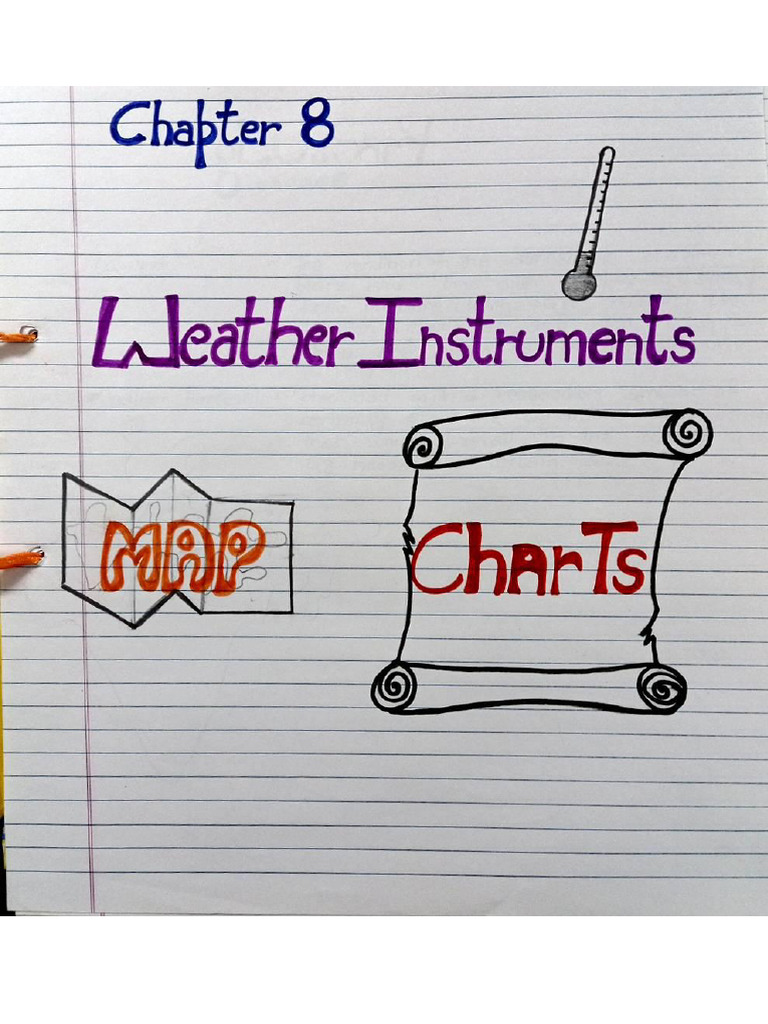 Chapter 8
Weather Instruments
MAP
CharTs